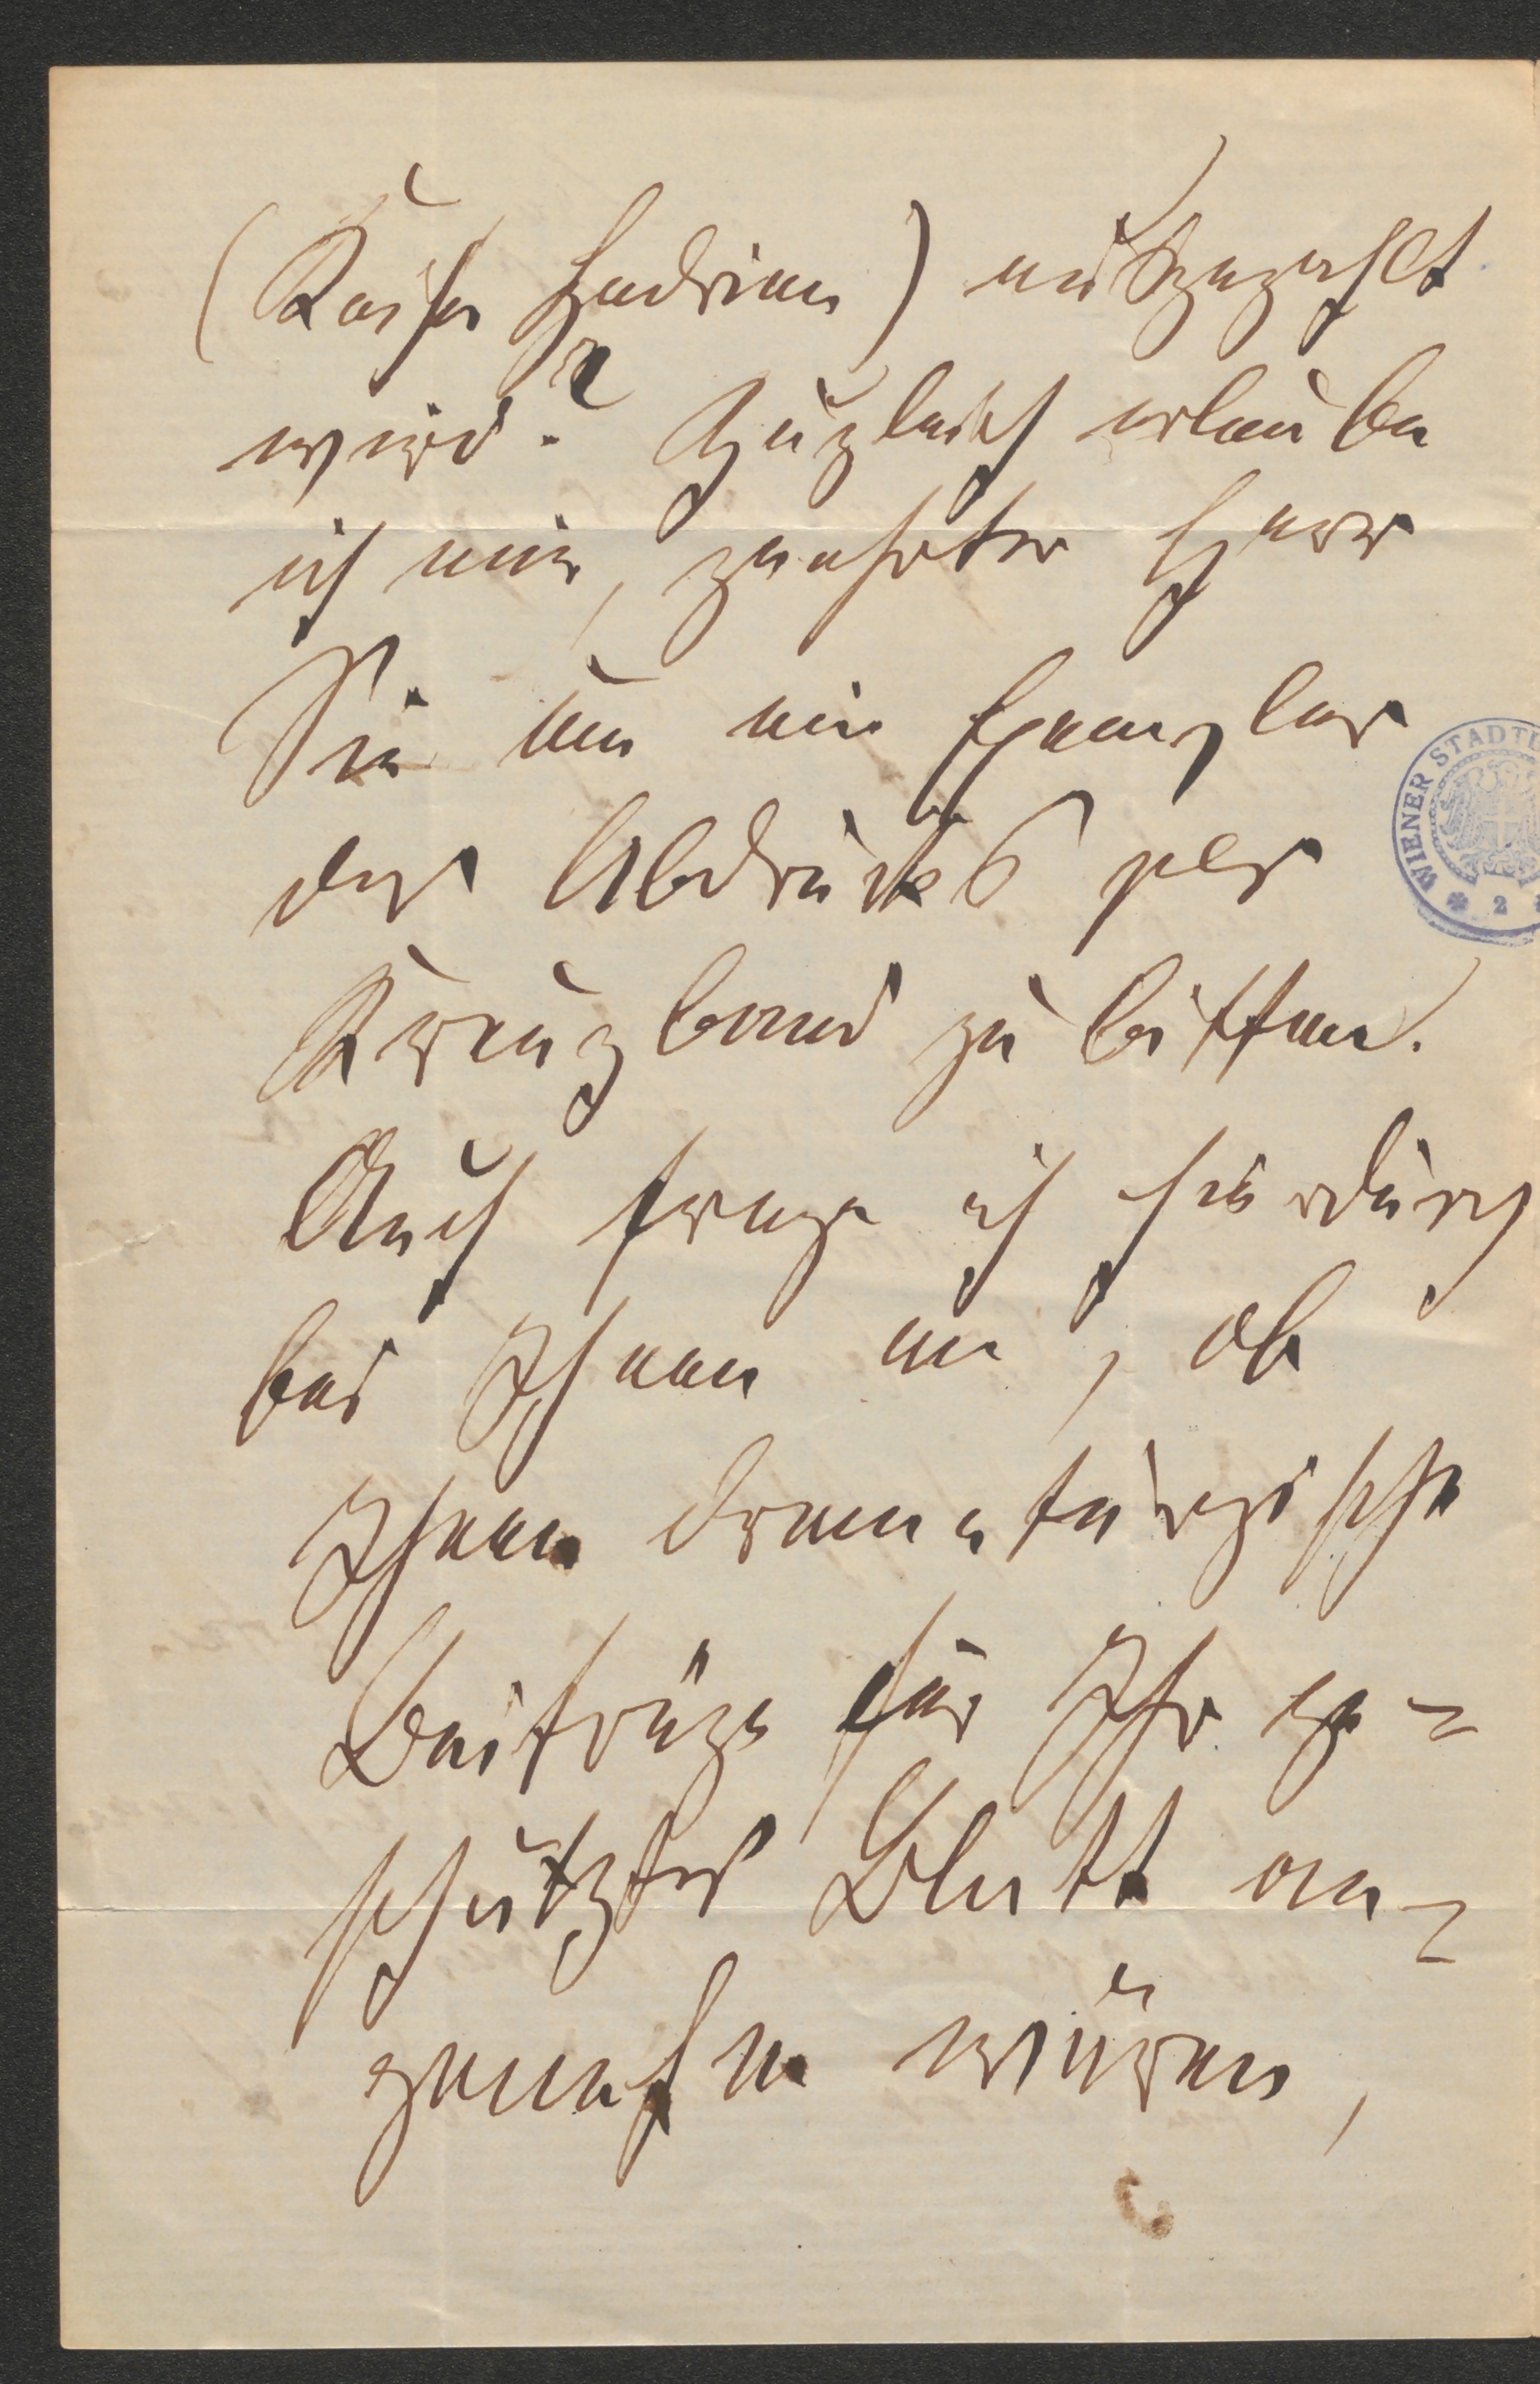 (Kaiser Hadrian) ausgezahlt
wird? Zugleich erlaube
ich mir, geehrter Herr
Sie um ein Exemplar
des Abdrucks per
Kreuzband zu bitten.
Auch frage ich hierdurch
bei Ihnen an, ob
Ihnen dramaturgische
Beiträge für Ihr ge-
schätztes Blatt an-
genehm wären,
WIENER STADT
2